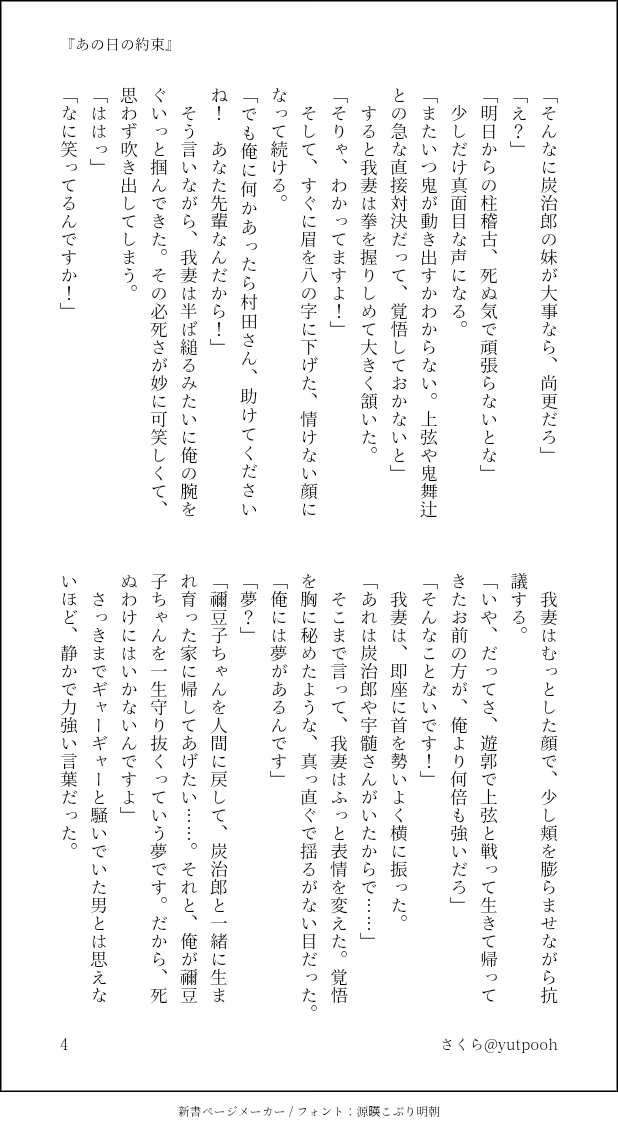 『あの日の約束』
「そんなに炭治郎の妹が大事なら、尚更だろ」
「え？」
「明日からの柱稽古、死ぬ気で頑張らないとな」
　少しだけ真面目な声になる。
「またいつ鬼が動き出すかわからない。上弦や鬼舞辻
との急な直接対決だって、覚悟しておかないと」
　すると我妻は拳を握りしめて大きく頷いた。
「そりゃ、わかってますよ！」
　そして、すぐに眉を八の字に下げた、情けない顔に
なって続ける。
「でも俺に何かあったら村田さん、助けてください
ね！　あなた先輩なんだから！」
　そう言いながら、我妻は半ば縋るみたいに俺の腕を
ぐいっと掴んできた。その必死さが妙に可笑しくて、
思わず吹き出してしまう。
「ははっ」
「なに笑ってるんですか！」
　我妻はむっとした顔で、少し頬を膨らませながら抗
議する。
「いや、だってさ、遊郭で上弦と戦って生きて帰って
きたお前の方が、俺より何倍も強いだろ」
「そんなことないです！」
　我妻は、即座に首を勢いよく横に振った。
「あれは炭治郎や宇髄さんがいたからで……」
　そこまで言って、我妻はふっと表情を変えた。覚悟
を胸に秘めたような、真っ直ぐで揺るがない目だった。
「俺には夢があるんです」
「夢？」
「禰豆子ちゃんを人間に戻して、炭治郎と一緒に生ま
れ育った家に帰してあげたい……。それと、俺が禰豆
子ちゃんを一生守り抜くっていう夢です。だから、死
ぬわけにはいかないんですよ」
　さっきまでギャーギャーと騒いでいた男とは思えな
いほど、静かで力強い言葉だった。
4
さくら@yutpooh
新書ページメーカー / フォント：源暎こぶり明朝